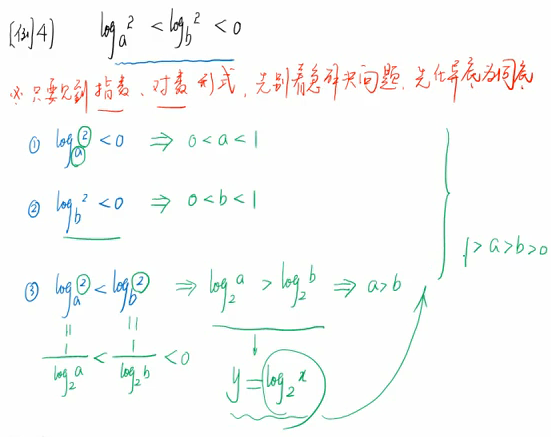 [例4] log_a 2 < log_b 2 < 0
※ 只要见到指数、对数形式，先别着急解决问题，先化异底为同底
① log_a 2 < 0 ⇒ 0 < a < 1
② log_b 2 < 0 ⇒ 0 < b < 1
③ log_a 2 < log_b 2 ⇒ log_2 a > log_2 b ⇒ a > b
1 > a > b > 0
= =
1/log_2 a < 1/log_2 b < 0
y = log_2 x